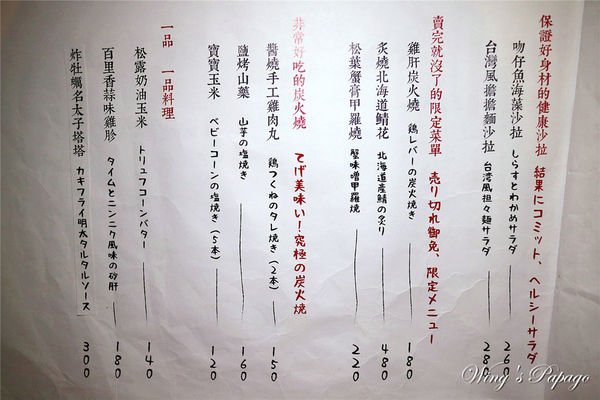 保證好身材的健康沙拉 結果にコミット、ヘルシーサラダ
吻仔魚海藻沙拉 しらすとわかめサラダ 260
台灣風擔擔麵沙拉 台湾風担々麺サラダ 280
賣完就沒了的限定菜單 売り切れ御免、限定メニュー
雞肝炭火燒 鶏レバーの炭火焼き 180
炙燒北海道鯖花 北海道産鯖の炙り 480
松葉蟹膏甲羅燒 蟹味噌甲羅焼 220
非常好吃的炭火燒 てげ美味い!究極の炭火焼
醬燒手工雞肉丸 鶏つくねのタレ焼き(2本) 150
鹽烤山藥 山芋の塩焼き 160
寶寶玉米 ベビーコーンの塩焼き(5本) 120
一品 一品料理
松露奶油玉米 トリュフコーンバター 140
百里香蒜味雞胗 タイムとニンニク風味の砂肝 180
炸牡蠣名太子塔塔 カキフライ明太タルタルソース 300
Wing's Papago